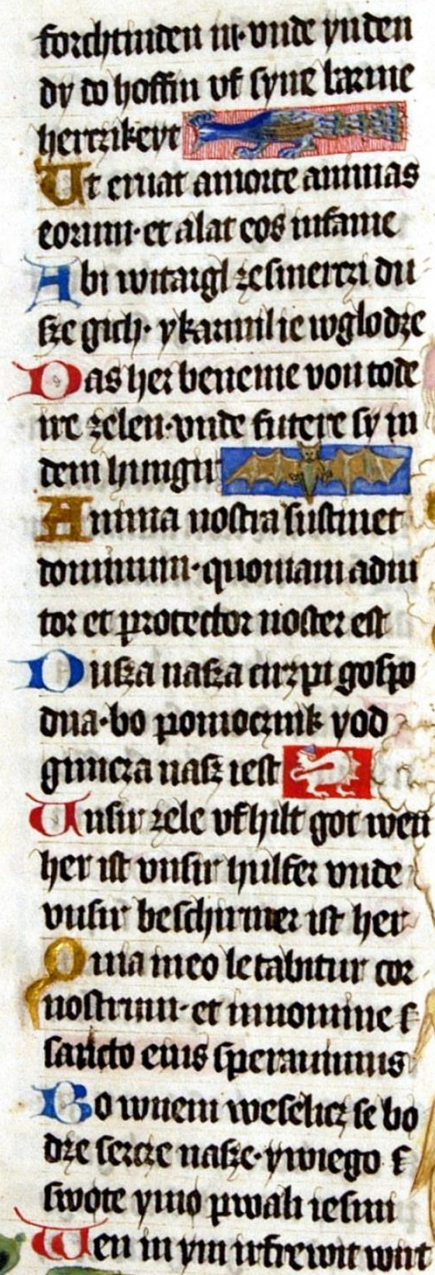 forchtinden in· vnde ynden
dy do hoffin vf syne barme
herczikeyt
Ut eruat a morte animas
eorum· et alat eos in fame
Abi witargl zesmerczi du
sze gich· ykarmil ie wglodze
Das her beneme von tode
ire zelen· vnde futere sy in
dem hungir
Anima nostra sustinet
dominum· quoniam adiu
tor et protector noster est
Dusza nasza cirzpi gospo
dna· bo pomocznik yod
gimcza nasz iest
Unsir zele vfhilt got wen
her ist vnsir hulfer vnde
vnsir beschirmer ist her
Quia in eo letabitur cor
nostrum· et in nomine s
sancto eius sperauimus
Bo wnem weselicz se bo
dze sercze nasze· ywiego s
swote ymo pwali iesmi
Wen in ym irfrewit wirt